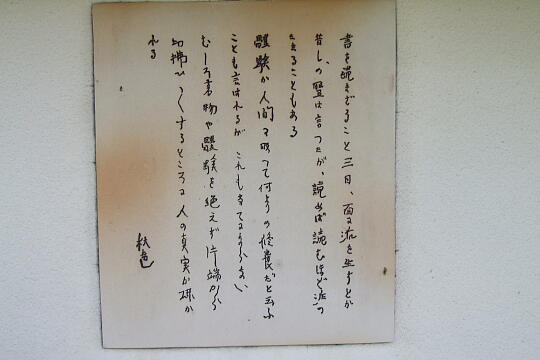 書を読まざること三日、面に泥を生ずとか
昔しの聖は言つたが、読めば読むほど泥の
たまることもある
體験が人間に取つて何よりの修養だと云ふ
ことも言はれるが これも當てにならない
むしろ書物や體験を絶えず片端から
切拂ひ〱するところに人の真実が研か
れる
秋声